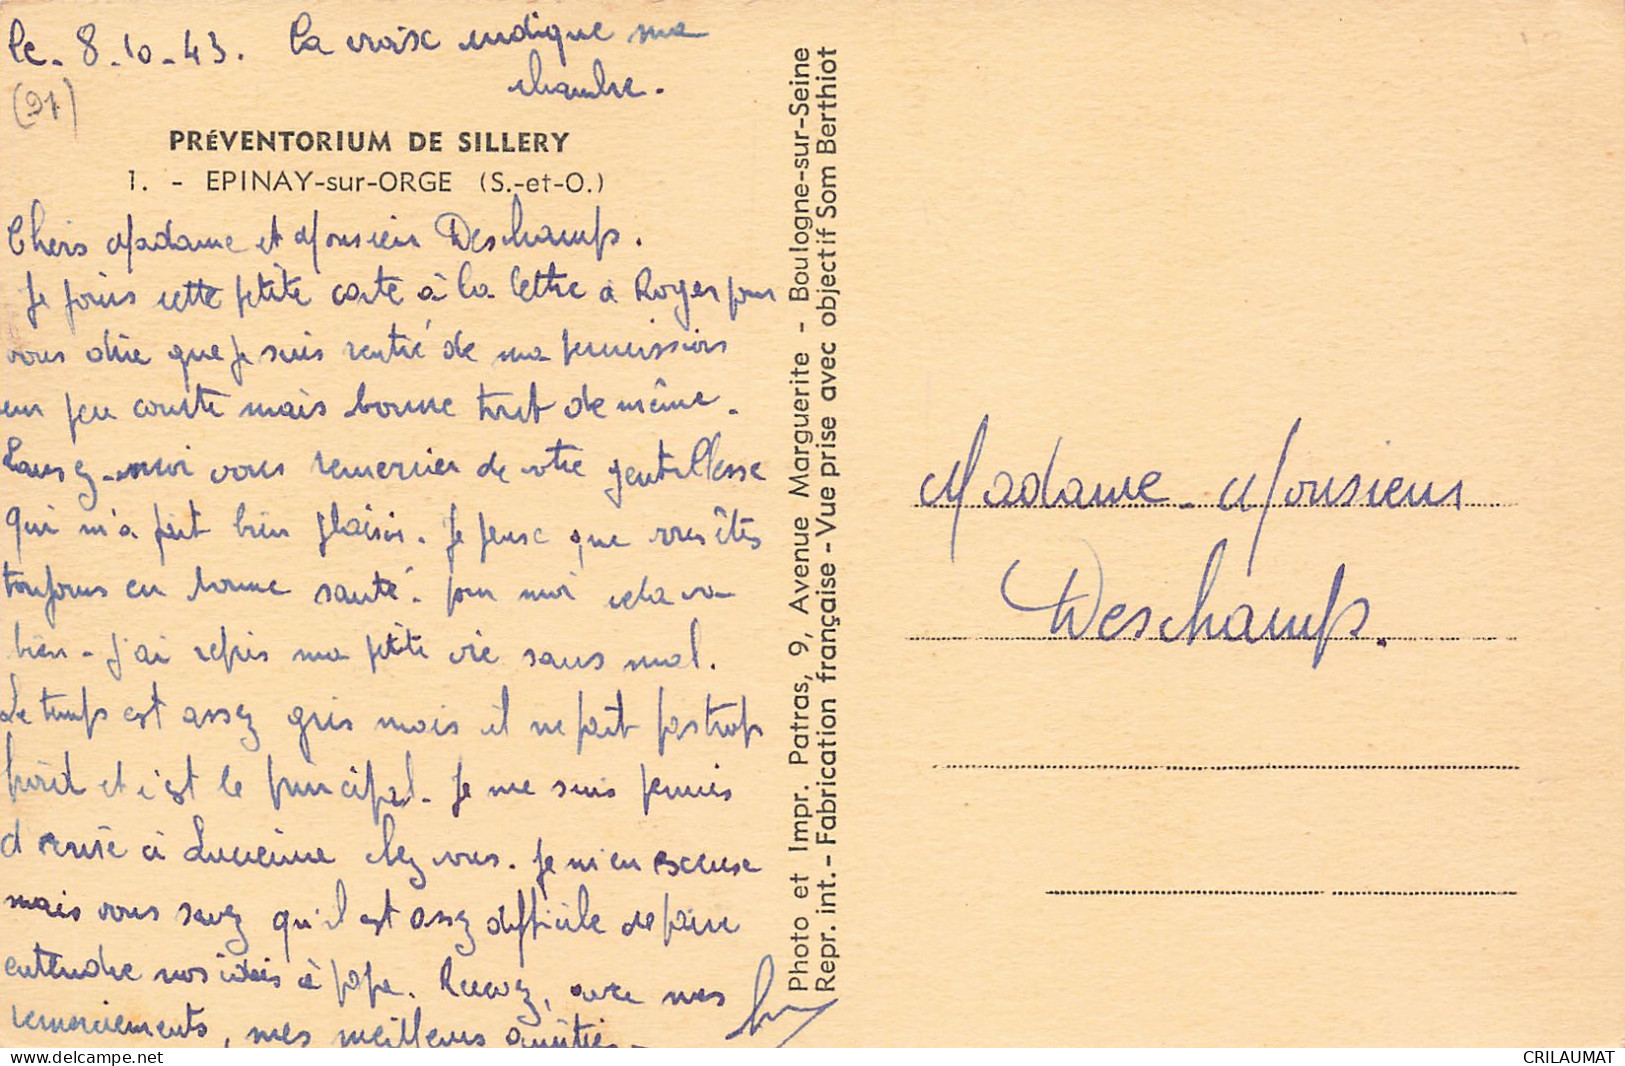 le - 8 - 10 - 43. la croix indique ma
chambre.
(91)
PRÉVENTORIUM DE SILLERY
1. - EPINAY-sur-ORGE (S.-et-O.)
Chers Madame et Monsieur Deschamps.
Je joins cette petite carte à la lettre à Roger pour
vous dire que je suis rentré de ma permissions
un peu courte mais bonne tout de même.
Laissez-moi vous remercier de votre gentillesse
qui m'a fait bien plaisir. Je pense que vous êtes
toujours en bonne santé. pour moi cela va
bien - j'ai repris ma petite vie sans mal.
Le temps est assez gris mais il ne fait pas trop
froid et c'est le principal. Je me suis permis
d'écrire à Lucienne chez vous. Je m'en excuse
mais vous savez qu'il est assez difficile de faire
entendre nos idées à papa. Recevez, avec mes
remerciements, mes meilleurs amitiés -
Photo et Impr. Patras, 9, Avenue Marguerite - Boulogne-sur-Seine
Repr. int. - Fabrication française - Vue prise avec objectif Som Berthiot
Madame - Monsieur
Deschamps.
delcampe.net
CRILAUMAT